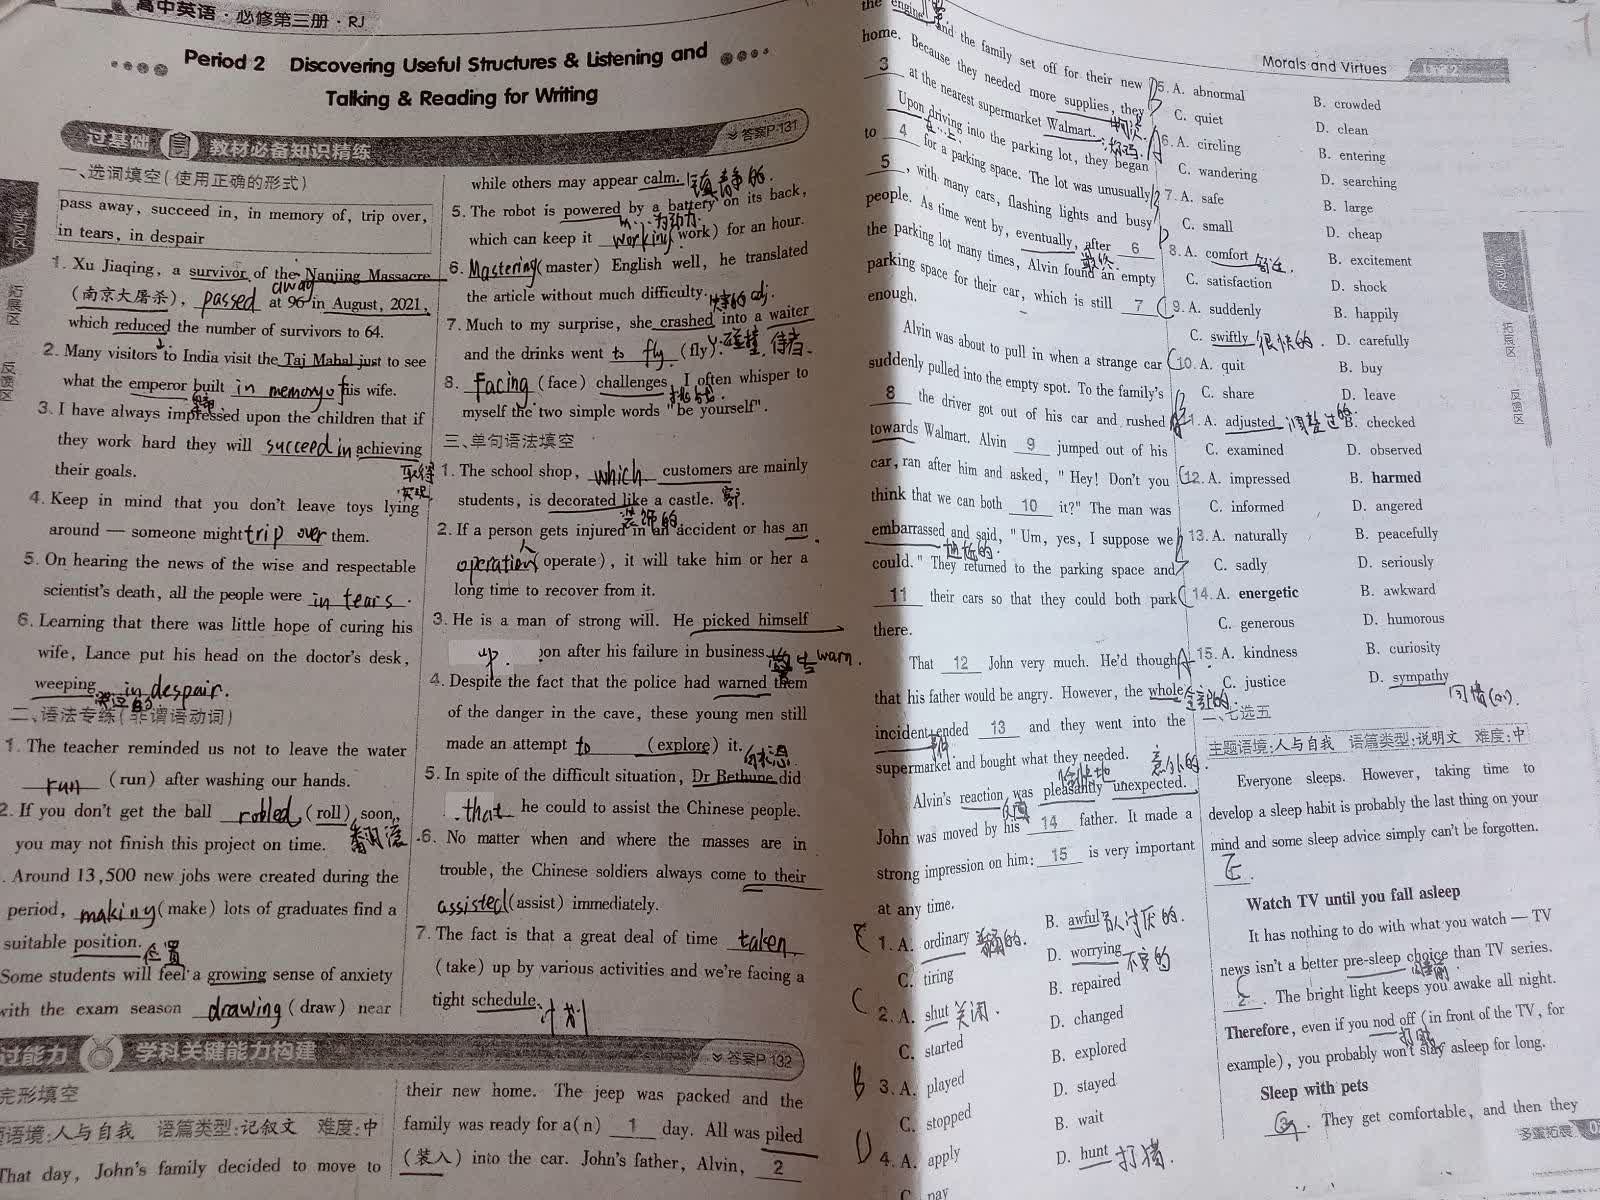 高中英语·必修第三册·RJ
Period 2 Discovering Useful Structures & Listening and
Talking & Reading for Writing
过基础 教材必备知识精练 答案P·131
一、选词填空(使用正确的形式)
pass away, succeed in, in memory of, trip over,
in tears, in despair
1. Xu Jiaqing, a survivor of the Nanjing Massacre
(南京大屠杀), passed away at 96 in August, 2021,
which reduced the number of survivors to 64.
2. Many visitors to India visit the Taj Mahal just to see
what the emperor built in memory of his wife.
3. I have always impressed upon the children that if
they work hard they will succeed in achieving
their goals. 取得
实现
4. Keep in mind that you don't leave toys lying
around — someone might trip over them.
5. On hearing the news of the wise and respectable
scientist's death, all the people were in tears.
6. Learning that there was little hope of curing his
wife, Lance put his head on the doctor's desk,
weeping in despair.
二、语法专练(非谓语动词)
1. The teacher reminded us not to leave the water
run (run) after washing our hands.
2. If you don't get the ball robled (roll) soon,
you may not finish this project on time. 翻滚
. Around 13,500 new jobs were created during the
period, making (make) lots of graduates find a
suitable position. 位置
Some students will feel a growing sense of anxiety
with the exam season drawing (draw) near
while others may appear calm. 镇静的.
5. The robot is powered by a battery on its back,
以…为动力
which can keep it working (work) for an hour.
6. Mastering (master) English well, he translated
the article without much difficulty.
7. Much to my surprise, she crashed into a waiter
and the drinks went to fly (fly). 碰撞 侍者.
8. Facing (face) challenges, I often whisper to
挑战
myself the two simple words "be yourself".
三、单句语法填空
1. The school shop, which customers are mainly
students, is decorated like a castle. 客
装饰的
2. If a person gets injured in an accident or has an
operation (operate), it will take him or her a
long time to recover from it.
3. He is a man of strong will. He picked himself
up. on after his failure in business.
警告warn.
4. Despite the fact that the police had warned them
of the danger in the cave, these young men still
made an attempt to (explore) it.
白求恩
5. In spite of the difficult situation, Dr Bethune did
that he could to assist the Chinese people.
6. No matter when and where the masses are in
trouble, the Chinese soldiers always come to their
assisted (assist) immediately.
7. The fact is that a great deal of time taken
(take) up by various activities and we're facing a
tight schedule. 计划
过能力 学科关键能力构建 答案P·132
完形填空
题语境:人与自我 语篇类型:记叙文 难度:中
That day, John's family decided to move to
their new home. The jeep was packed and the
family was ready for a(n) 1 day. All was piled
(装入) into the car. John's father, Alvin, 2
Morals and Virtues Unit 2
the engine, and the family set off for their new
home. Because they needed more supplies, they
3 at the nearest supermarket Walmart.
Upon driving into the parking lot, they began
to 4 for a parking space. The lot was unusually
5, with many cars, flashing lights and busy
people. As time went by, eventually, after 6
最终
the parking lot many times, Alvin found an empty
parking space for their car, which is still 7
enough.
Alvin was about to pull in when a strange car
suddenly pulled into the empty spot. To the family's
8 the driver got out of his car and rushed
towards Walmart. Alvin 9 jumped out of his
car, ran after him and asked, "Hey! Don't you
think that we can both 10 it?" The man was
embarrassed and said, "Um, yes, I suppose we
尴尬的.
could." They returned to the parking space and
11 their cars so that they could both park
there.
That 12 John very much. He'd though
that his father would be angry. However, the whole
全部的.
incident ended 13 and they went into the
supermarket and bought what they needed.
愉快地 意外的.
Alvin's reaction was pleasantly unexpected.
反应
John was moved by his 14 father. It made a
strong impression on him: 15 is very important
at any time.
1. A. ordinary 普通的. B. awful 令人讨厌的.
C. tiring D. worrying 不安的
2. A. shut 关闭. B. repaired
C. started D. changed
3. A. played B. explored
C. stopped D. stayed
4. A. apply B. wait
C. pay D. hunt 打猎.
5. A. abnormal B. crowded
C. quiet D. clean
6. A. circling B. entering
C. wandering D. searching
7. A. safe B. large
C. small D. cheap
8. A. comfort B. excitement
C. satisfaction D. shock
9. A. suddenly B. happily
C. swiftly 很快的. D. carefully
10. A. quit B. buy
C. share D. leave
11. A. adjusted 调整过的 B. checked
C. examined D. observed
12. A. impressed B. harmed
C. informed D. angered
13. A. naturally B. peacefully
C. sadly D. seriously
14. A. energetic B. awkward
C. generous D. humorous
15. A. kindness B. curiosity
C. justice D. sympathy
同情(n).
二、七选五
主题语境:人与自我 语篇类型:说明文 难度:中
Everyone sleeps. However, taking time to
develop a sleep habit is probably the last thing on your
mind and some sleep advice simply can't be forgotten.
E.
Watch TV until you fall asleep
It has nothing to do with what you watch — TV
news isn't a better pre-sleep choice than TV series.
睡前.
2. The bright light keeps you awake all night.
Therefore, even if you nod off (in front of the TV, for
example), you probably won't stay asleep for long.
Sleep with pets
3. They get comfortable, and then they
学习区
拓展区
反馈区
多重拓展